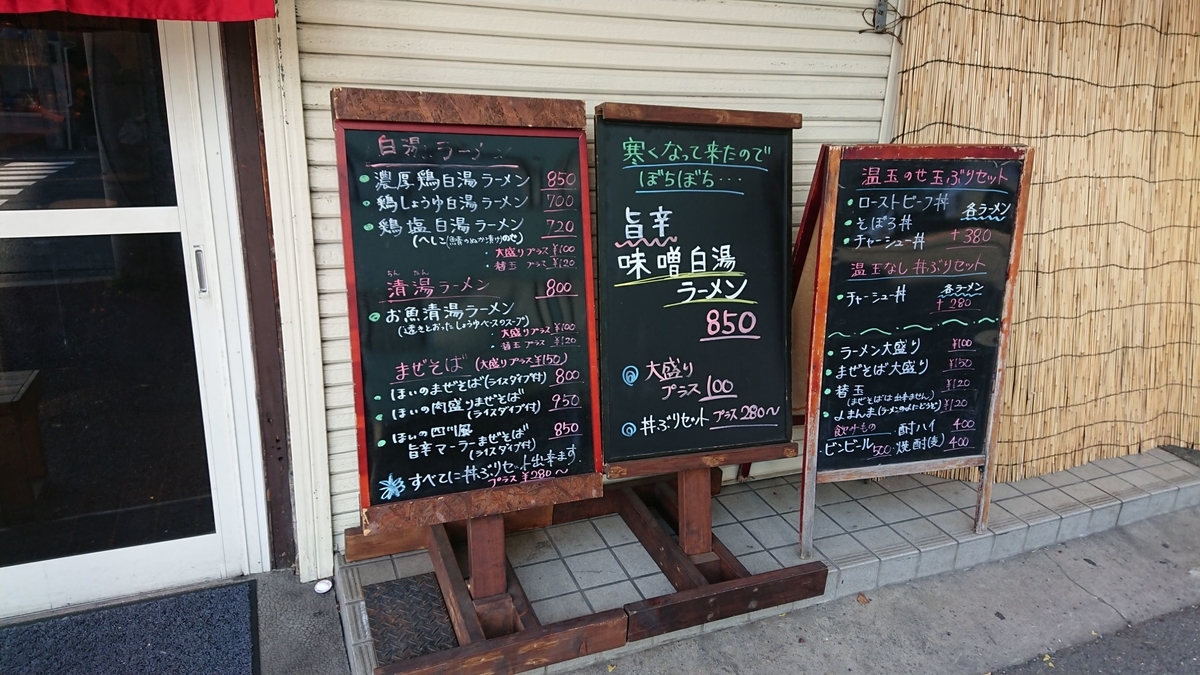 白湯ラーメン
濃厚鶏白湯ラーメン 850
鶏しょうゆ白湯ラーメン 700
鶏塩白湯ラーメン 720
(へしこ(鯖のぬか漬け)のせ)
・大盛りプラス ¥100
・替玉プラス ¥120
ちん たん
清湯ラーメン 800
お魚清湯ラーメン
(透きとおったしょうゆベースのスープ)
大盛りプラス ¥100
・替玉プラス ¥120
まぜそば (大盛りプラス¥150)
ほいのまぜそば(ライスダイブ付) 800
ほいの肉盛りまぜそば
(ライスダイブ付) 950
ほいの四川風
旨辛マーラーまぜそば 850
(ライスダイブ付)
すべてに丼ぶりセット出来ます
プラス ¥280〜
寒くなって来たので
ぼちぼち・・・
旨辛
味噌白湯
ラーメン
850
大盛り
プラス 100
丼ぶりセット プラス 280〜
温玉のせ玉ぶりセット
・ローストビーフ丼
・そぼろ丼 各ラーメン
・チャーシュー丼 +380
温玉なし丼ぶりセット
・チャーシュー丼 各ラーメン
+280
・ラーメン大盛り ¥100
・まぜそば大盛り ¥150
・替玉 ¥120
(まぜそばは出来ません)
・よまんま ¥120
飲けもの ・酎ハイ 400
・ビンビール 500 ・焼酎(麦) 400